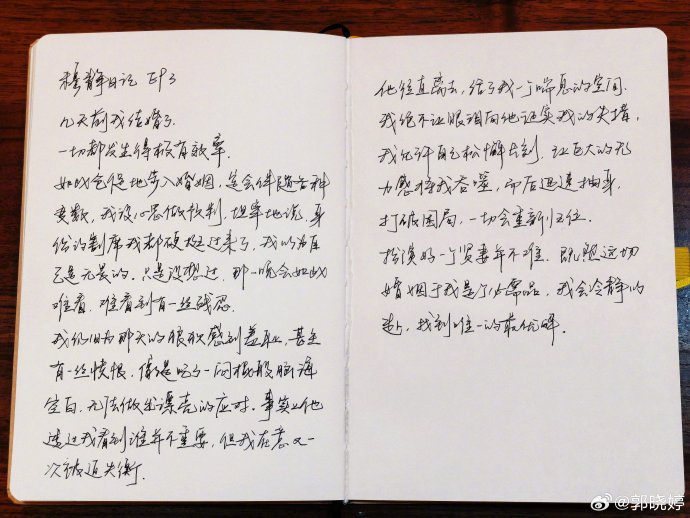 穆静日记 EP3
几天前我结婚了.
一切都发生得极有效率.
如此仓促地步入婚姻,定会伴随各种
变数,我没心思做预判,坦率地说,身
份的割席我都硬挺过来了,我以为自
己是无畏的.只是没想过,那一晚会如此
难看,难看到有一丝残忍.
我仍旧为那天的狼狈感到羞耻,甚至
有一丝愤恨,像是吃了一闷棍般脑海
空白,无法做出漂亮的应对.事实上他
透过我看到谁并不重要,但我在意又一
次被逼失衡.
他径直离去,给了我一个喘息的空间.
我绝不让眼泪向他证实我的失措,
我允许自己松懈片刻,让巨大的无
力感将我吞噬,而后迅速抽身,
打破困局,一切会重新归位.
扮演好一个贤妻并不难.既然这切
婚姻于我是个必需品,我会冷静的
找到唯一的最优解.
@郭晓婷